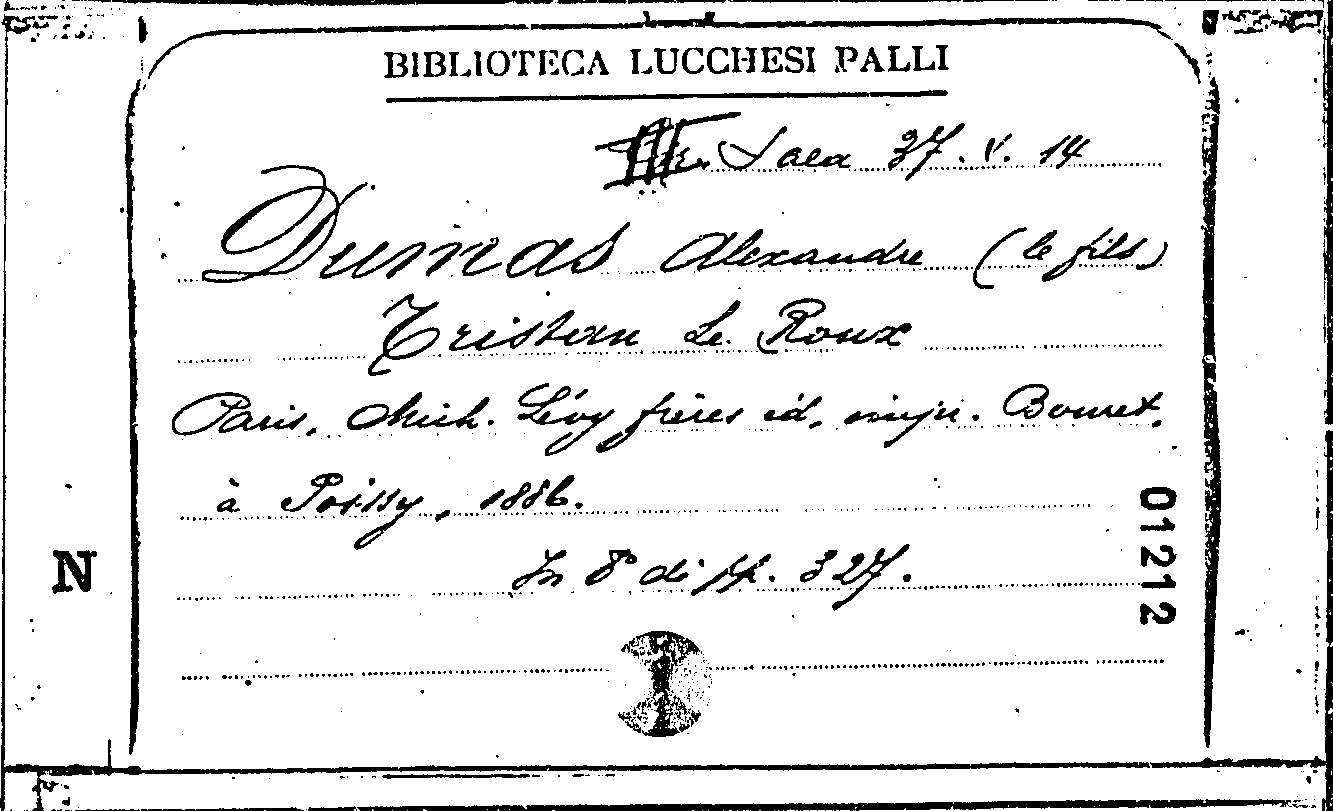 BIBLIOTECA LUCCHESI PALLI
Sala 37. V. 14
Dumas Alexandre (le fils)
Tristan Le Roux
Paris, Mich. Lévy frères éd, impr. Bouret,
à Poissy, 1886.
In 8° di pp. 327.
01212
N